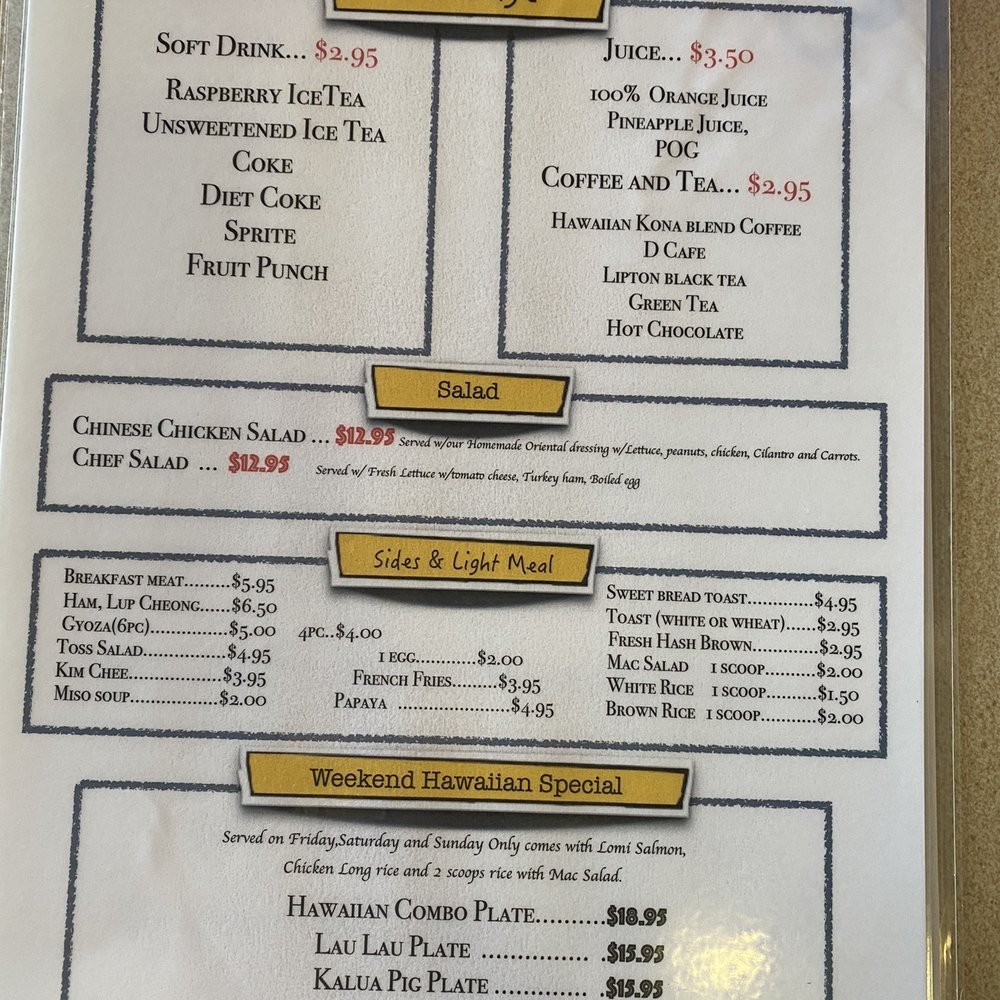 Soft Drink... $2.95
Raspberry IceTea
Unsweetened Ice Tea
Coke
Diet Coke
Sprite
Fruit Punch
Juice... $3.50
100% Orange Juice
Pineapple Juice,
POG
Coffee and Tea... $2.95
Hawaiian Kona blend Coffee
D Cafe
Lipton black tea
Green Tea
Hot Chocolate
Salad
Chinese Chicken Salad ... $12.95 Served w/our Homemade Oriental dressing w/Lettuce, peanuts, chicken, Cilantro and Carrots.
Chef Salad ... $12.95 Served w/ Fresh Lettuce w/tomato cheese, Turkey ham, Boiled egg
Sides & Light Meal
Breakfast meat.........$5.95
Ham, Lup Cheong......$6.50
Gyoza(6pc)...............$5.00 4pc..$4.00
Toss Salad................$4.95
Kim Chee..................$3.95
Miso soup.................$2.00
1 egg............$2.00
French Fries.........$3.95
Papaya .....................$4.95
Sweet bread toast.............$4.95
Toast (white or wheat)......$2.95
Fresh Hash Brown..............$2.95
Mac Salad 1 scoop...........$2.00
White Rice 1 scoop...........$1.50
Brown Rice 1 scoop...........$2.00
Weekend Hawaiian Special
Served on Friday,Saturday and Sunday Only comes with Lomi Salmon,
Chicken Long rice and 2 scoops rice with Mac Salad.
Hawaiian Combo Plate..........$18.95
Lau Lau Plate ................ .$15.95
Kalua Pig Plate .............. .$15.95